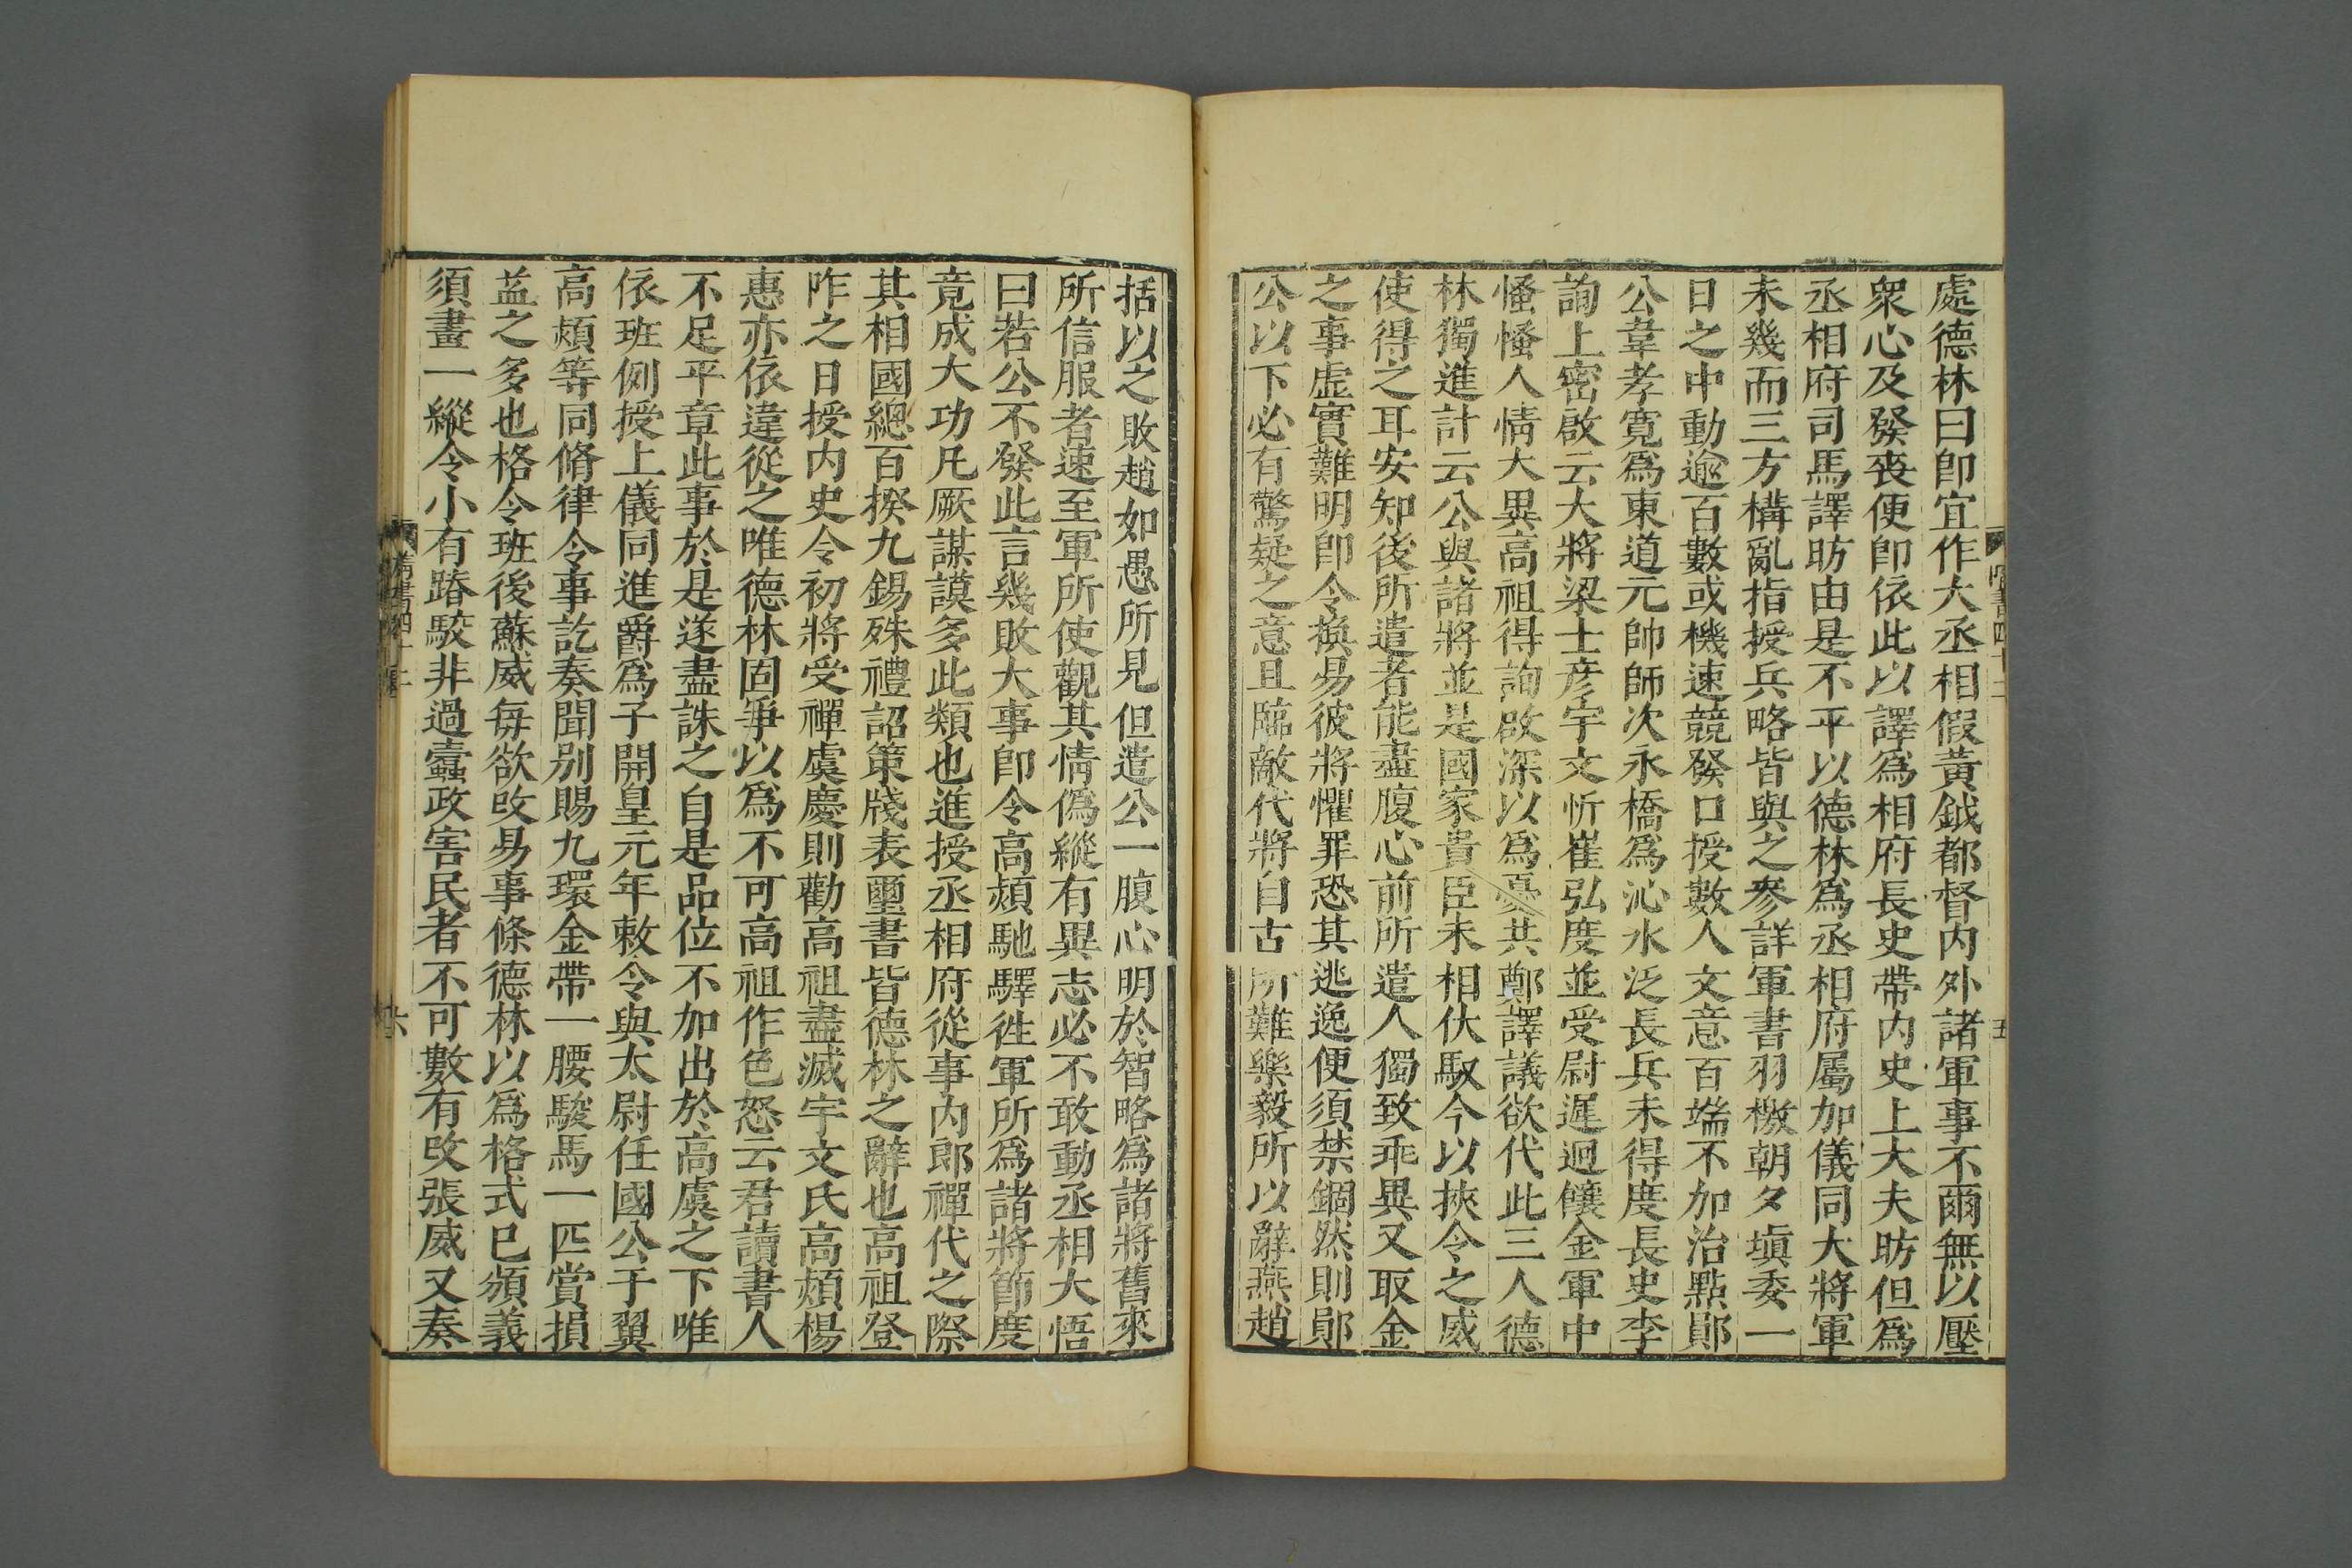 處德林曰卽宜作大丞相假黃鉞都督内外諸軍事不爾無以壓
衆心及發喪便卽依此以譯爲相府長史帶内史上大夫昉但爲
丞相府司馬譯昉由是不平以德林爲丞相府屬加儀同大將軍
未幾而三方構亂指授兵略皆與之參詳軍書羽檄朝夕塡委一
日之中動逾百數或機速競發口授數人文意百端不加治點鄖
公韋孝寬爲東道元帥師次永橋爲沁水泛長兵未得度長史李
詢上密啟云大將梁士彦宇文忻崔弘度並受尉遲迥饟金軍中
慅慅人情大異高祖得詢啟深以爲憂共鄭譯議欲代此三人德
林獨進計云公與諸將並是國家貴臣未相伏馭今以挾令之威
使得之耳安知後所遣者能盡腹心前所遣人獨致乖異又取金
之事虛實難明卽令換易彼將懼罪恐其逃逸便須禁錮然則鄖
公以下必有驚疑之意且臨敵代將自古所難樂毅所以辭燕趙
括以之敗趙如愚所見但遣公一腹心明於智略爲諸將舊來
所信服者速至軍所使觀其情僞縱有異志必不敢動丞相大悟
曰若公不發此言幾敗大事卽令高熲馳驛徃軍所爲諸將節度
竟成大功凡厥謀謨多此類也進授丞相府從事内郎禪代之際
其相國總百揆九錫殊禮詔策牋表璽書皆德林之辭也高祖登
阼之日授内史令初將受禪虞慶則勸高祖盡滅宇文氏高熲楊
惠亦依違從之唯德林固爭以爲不可高祖作色怒云君讀書人
不足平章此事於是遂盡誅之自是品位不加出於高虞之下唯
依班例授上儀同進爵爲子開皇元年敕令與太尉任國公于翼
高熲等同脩律令事訖奏聞别賜九環金帶一腰駿馬一匹賞損
益之多也格令班後蘇威每欲改易事條德林以爲格式已頒義
須畫一縱令小有踳駮非過蠹政害民者不可數有改張威又奏
隋書四十二
五
六